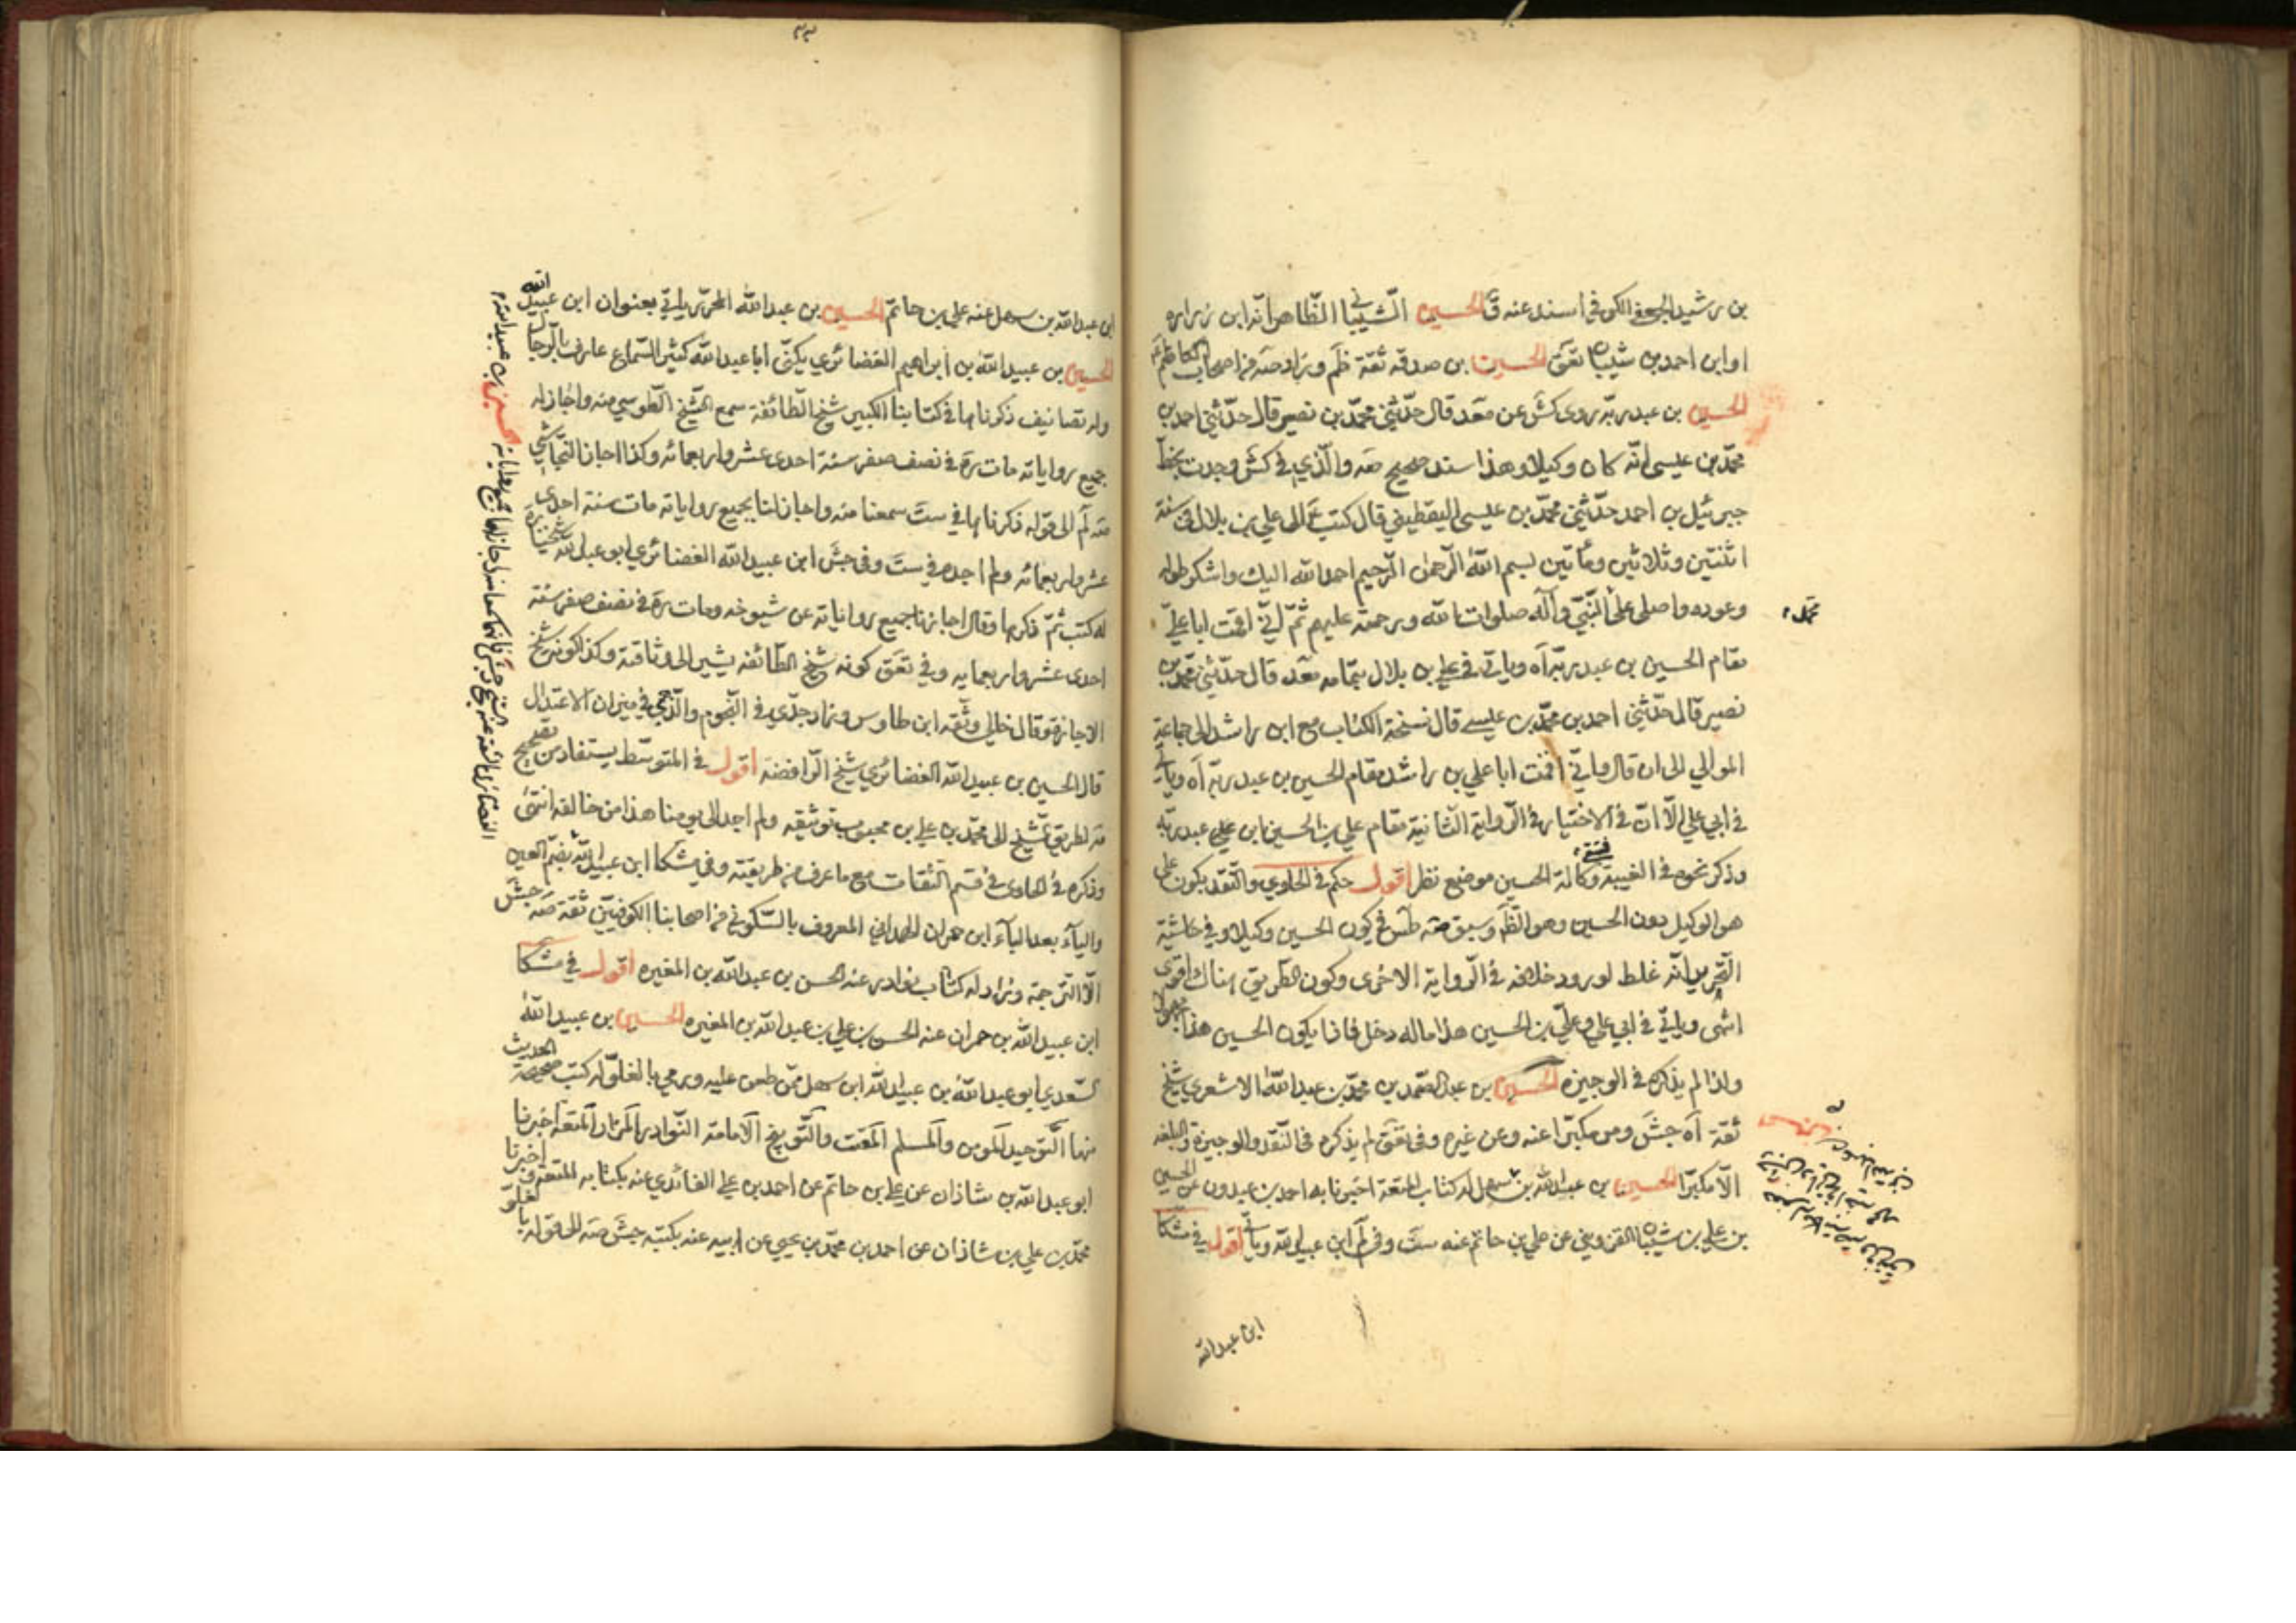 بن رشيد الجعفي الكوفي اسند عنه ق الحسين الشيباني الظاهر انه ابن زراره
او ابن احمد بن شيبان تعق الحسين بن صدقه ثقة ظم وزاد صه من اصحاب الكاظم
الحسين بن عبد ربه روى كش عن قال حدثني محمد بن نصير قال حدثني احمد بن
محمد بن عيسى انه كان وكيلا وهذا سند صحيح صه والذي في كش وجدت بخط
جبرئيل بن احمد حدثني محمد بن عيسى اليقطيني قال كتب ع الى علي بن بلال في سنة
اثنتين وثلاثين ومأتين بسم الله الرحمن الرحيم احمد الله اليك واشكر طوله
وعوده واصلي على النبي وآله صلوات الله ورحمته عليهم ثم اني اقمت ابا علي
مقام الحسين بن عبد ربه آه وياتي في علي بن بلال بتمامه قال حدثني محمد بن
نصير قال حدثني احمد بن محمد بن عيسى قال نسخة الكتاب مع ابن راشد الى جماعة
الموالي الى ان قال واني اقمت ابا علي بن راشد مقام الحسين بن عبد ربه آه وياتي
في ابي علي الا ان في الاختيار في الرواية الثانية مقام علي بن الحسين ابن علي عبد ربه
وذكر نحوه في الغيبة وكالة الحسين موضع نظر اقول حكم في الحاوي والنقد بكون علي
هو الوكيل دون الحسين وهو الظ وسبق طس في كون الحسين وكيلا وفي حاشية
التحرير انه غلط لورود خلافه في الرواية الاخرى وكون الطريق هناك اقوى
انتهى وياتي في ابي علي وعلي بن الحسين هذا ماله دخل فاذا يكون الحسين هذا مجهولا
ولذا لم يذكره في الوجيزه الحسين بن عبد الصمد بن محمد بن عبد الله الاشعري شيخ
ثقة آه جش ومن مكبرا عنه وعن غيره وفي تعق لم يذكره في النقد والوجيزة والبلغه
الا مكبرا الحسين بن عبد الله بن سهل له كتاب المتعة اخبرنا به احمد بن عبدون عن الحسين
بن علي بن شيبان القزويني عن علي بن حاتم عنه ست وفي لم ابن عبيد الله وياتي اقول في مشكا
ابن عبد الله
ابن عبد الله بن سهل عنه علي بن حاتم الحسين بن عبد الله المحرر ياتي بعنوان ابن عبيد الله
الحسين بن عبيد الله بن ابراهيم الغضائري يكنى ابا عبد الله كثير السماع عارف بالرجال
وله تصانيف ذكرناها في كتابنا الكبير شيخ الطائفة سمع الشيخ الطوسي منه واجاز له
جميع رواياته مات ره في نصف صفر سنة احدى عشر واربعمائه وكذا اجاز النجاشي
صه لم الى قوله ذكرناها في ست سمعنا منه واجاز لنا بجميع رواياته مات سنة احدى
عشر واربعمائه ولم اجده في ست وفي جش ابن عبيد الله الغضائري ابو عبد الله شيخنا ره
له كتب ثم ذكرها وقال اجازنا جميع رواياته عن شيوخه ومات ره في نصف صفر سنة
احدى عشر واربعمايه وفي تعق كونه شيخ الطائفه يشير الى وثاقته وكذا كونه شيخ
الاجازة وقال خالي وثقه ابن طاوس وزاد جدي في النجوم والذهبي في ميزان الاعتدال
قال الحسين بن عبيد الله الغضائري شيخ الرافضه اقول في المتوسط يستفاد من تصحيح
صه لطريق الشيخ الى محمد بن علي بن محبوب توثيقه ولم اجد الى يومنا هذا من خالفه انتهى
وذكره في الحاوي في قسم الثقات مع ما عرف من طريقته وفي مشكا ابن عبيد الله بضم العين
والياء بعد الباء ابن حمران الهمداني المعروف بالسكوني من اصحابنا الكوفيين ثقة صه جش
الا الترجمه وزاد له كتاب نوادر عنه الحسن بن عبد الله بن المغيره اقول في مشكا
ابن عبيد الله بن حمران عنه الحسن بن علي بن عبد الله بن المغيره الحسين بن عبيد الله
السعدي ابو عبد الله بن عبيد الله ابن سهل ممن طعن عليه ورمي بالغلو له كتب صحيحة الحديث
منها التوحيد المومن والمسلم المقت والتوبيخ الامامة النوادر المزار المتعة اخبرنا
ابو عبد الله بن شاذان عن علي بن حاتم عن احمد بن علي الفائدي عنه بكتابه المتعة واخبرنا
محمد بن علي بن شاذان عن احمد بن محمد بن يحيى عن ابيه عنه بكتبه جش صه الى قوله بالغلو